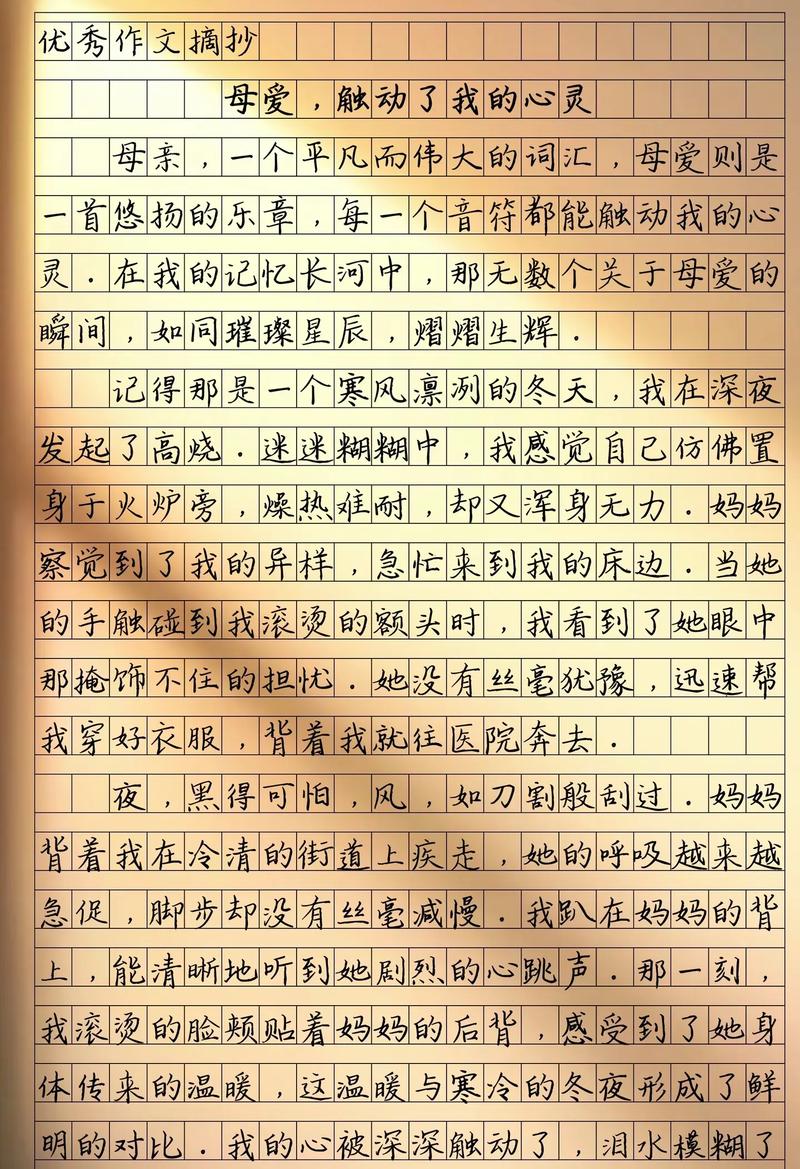 优秀作文摘抄
母爱，触动了我的心灵
母亲，一个平凡而伟大的词汇，母爱则是
一首悠扬的乐章，每一个音符都能触动我的心
灵．在我的记忆长河中，那无数个关于母爱的
瞬间，如同璀璨星辰，熠熠生辉．
记得那是一个寒风凛冽的冬天，我在深夜
发起了高烧．迷迷糊糊中，我感觉自己仿佛置
身于火炉旁，燥热难耐，却又浑身无力．妈妈
察觉到了我的异样，急忙来到我的床边．当她
的手触碰到我滚烫的额头时，我看到了她眼中
那掩饰不住的担忧．她没有丝毫犹豫，迅速帮
我穿好衣服，背着我就往医院奔去．
夜，黑得可怕，风，如刀割般刮过．妈妈
背着我在冷清的街道上疾走，她的呼吸越来越
急促，脚步却没有丝毫减慢．我趴在妈妈的背
上，能清晰地听到她剧烈的心跳声．那一刻，
我滚烫的脸颊贴着妈妈的后背，感受到了她身
体传来的温暖，这温暖与寒冷的冬夜形成了鲜
明的对比．我的心被深深触动了，泪水模糊了